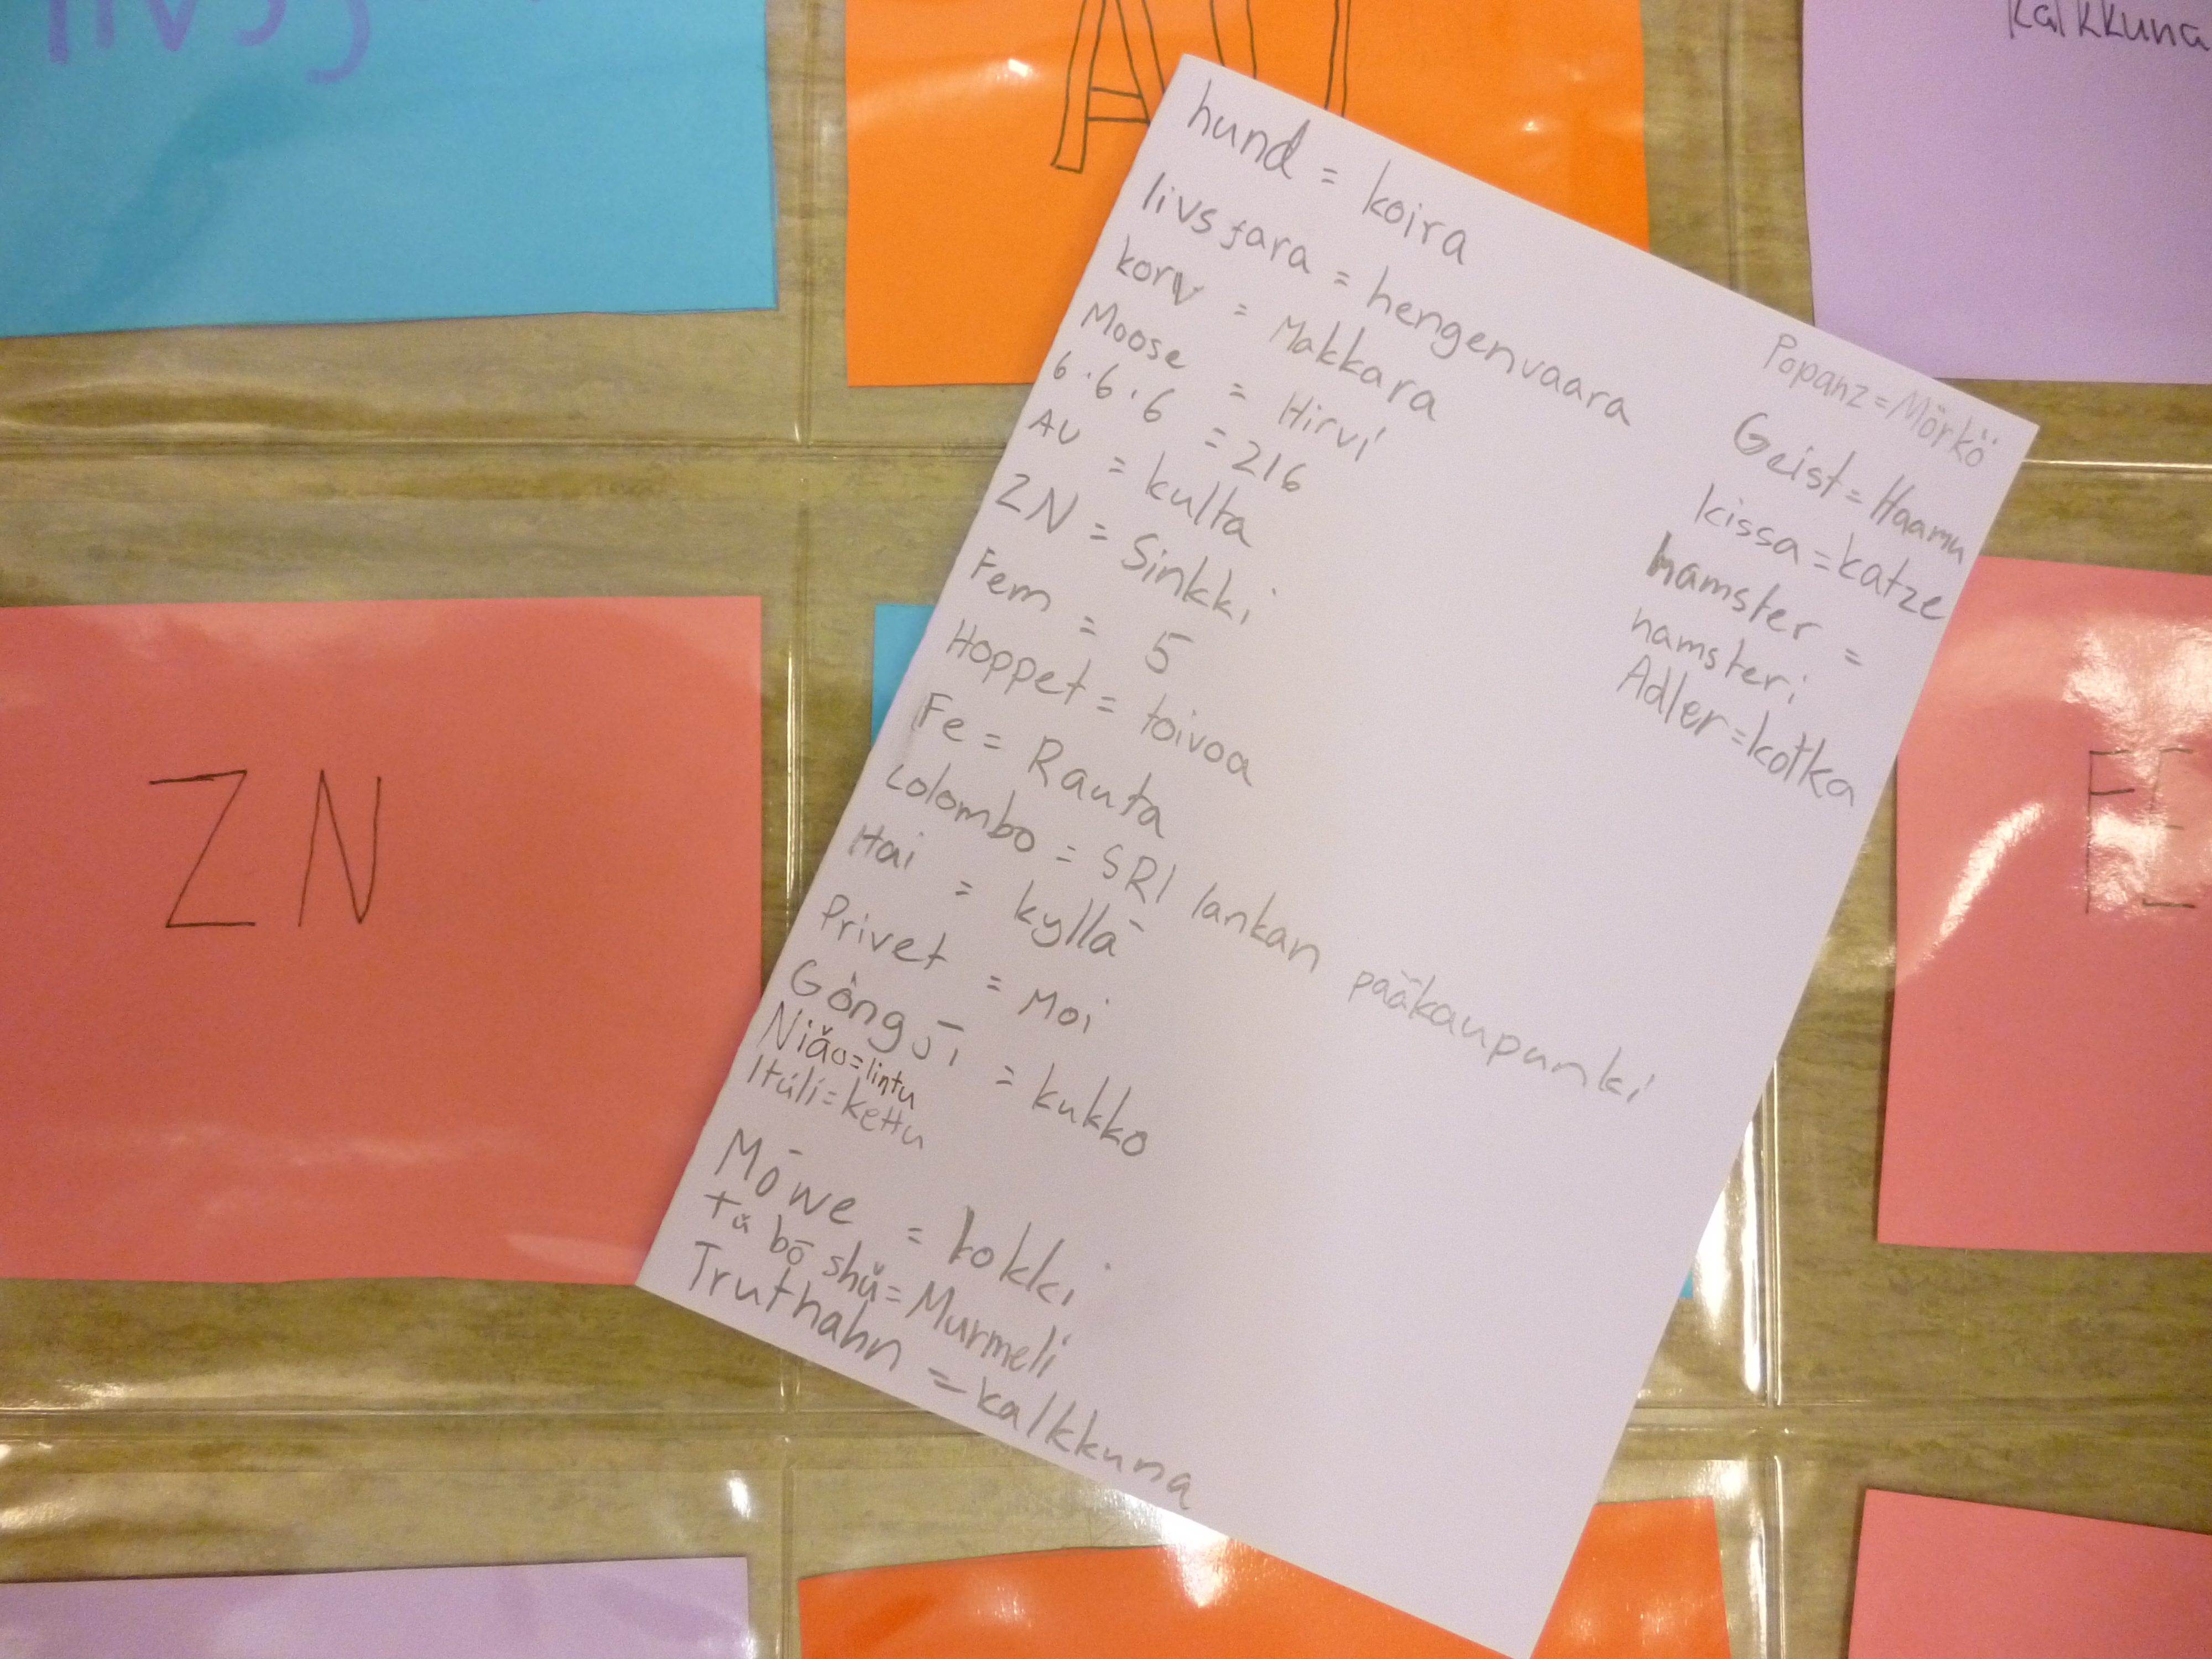 livsf
AU
kalkkuna
hund = koira
livsfara = hengenvaara
korv = Makkara
Moose = Hirvi
6·6·6 = 216
AU = kulta
ZN = Sinkki
Fem = 5
Hoppet = toivoa
Fe = Rauta
Colombo = SRI lankan pääkaupunki
Hai = kyllä
Privet = Moi
Gōng jī = kukko
Niǎo = lintu
Itúlí = kettu
Möwe = lokki
tǔ bō shǔ = Murmeli
Truthahn = kalkkuna
Popanz = Mörkö
Geist = Haamu
kissa = katze
hamster =
hamsteri
Adler = kotka
ZN
FE